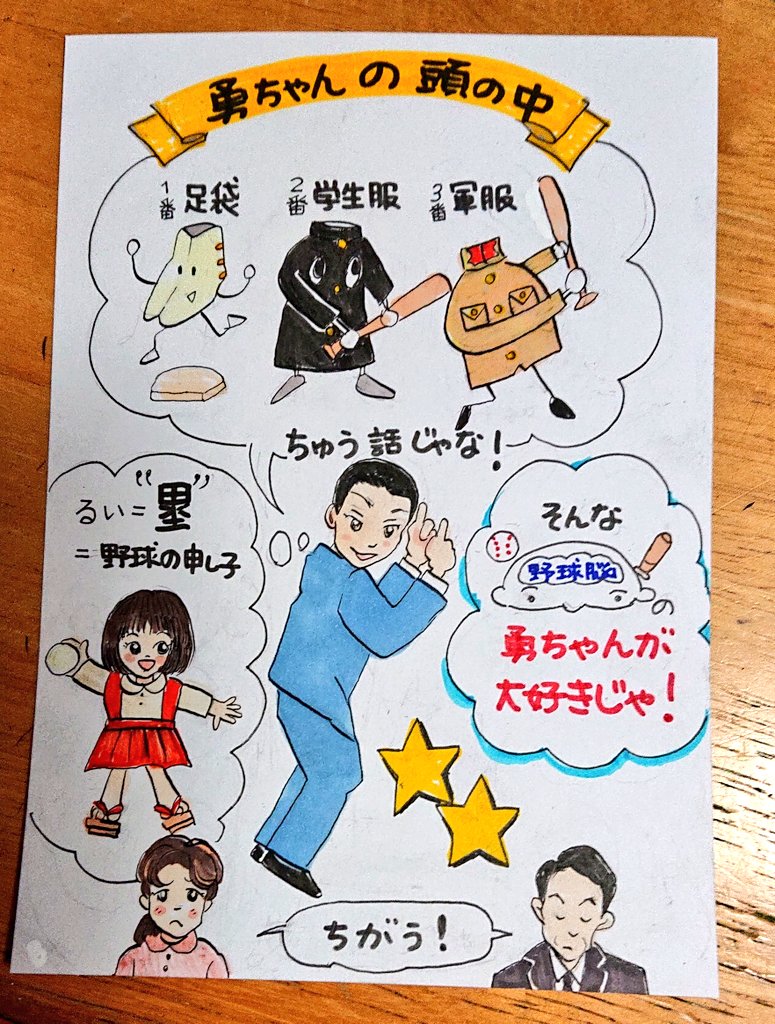 勇ちゃんの頭の中
1番 足袋
2番 学生服
3番 軍服
ちゅう話じゃな!
るい="塁"
=野球の申し子
そんな
野球脳
勇ちゃんが
大好きじゃ!
ちがう!